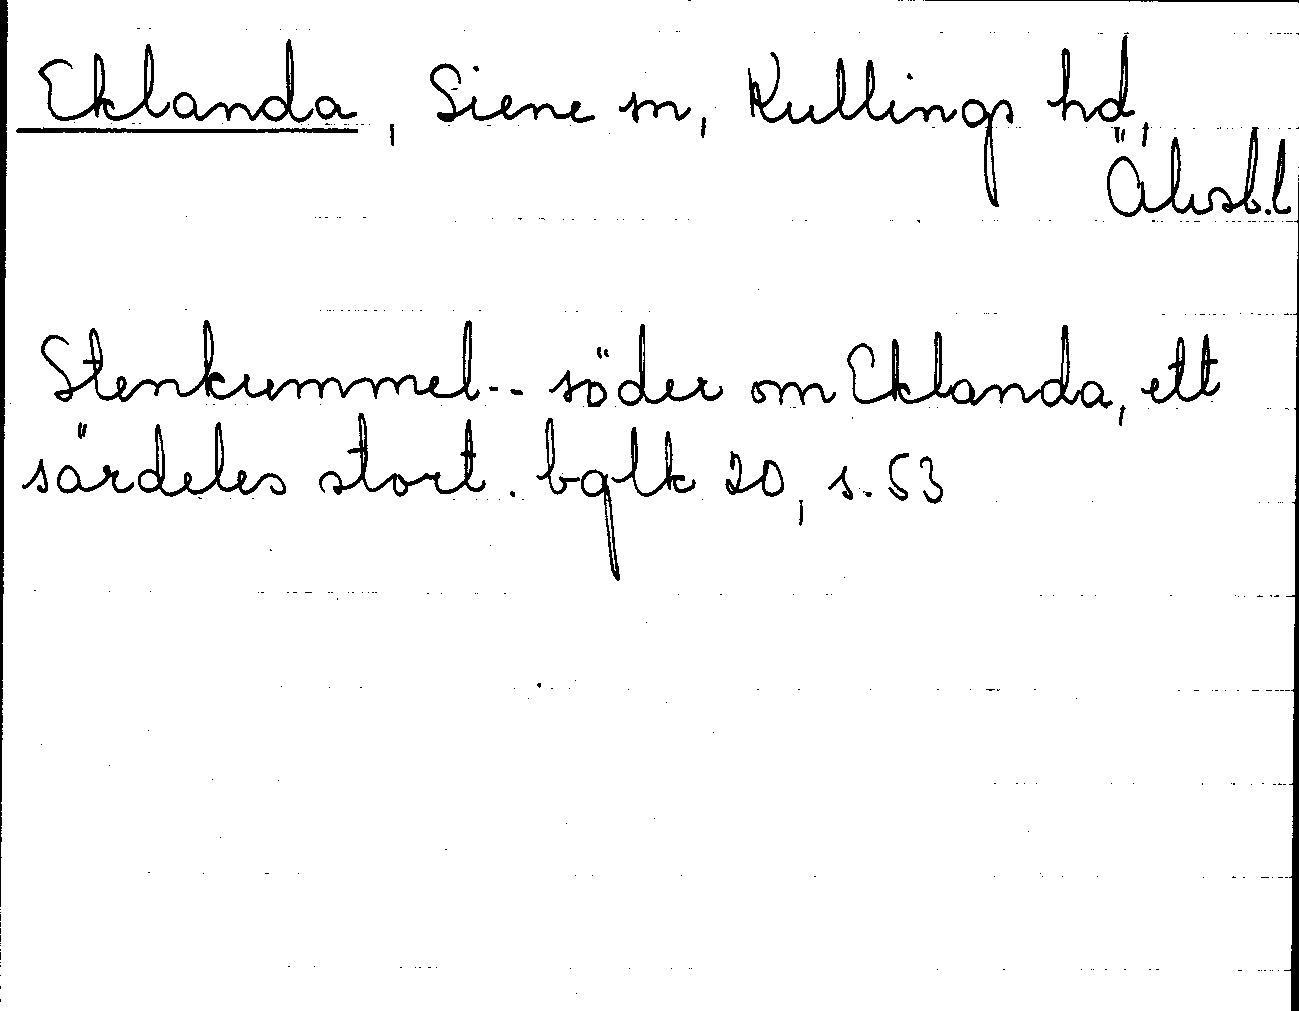 Eklanda, Siene sn, Kullings hd,
Älvsb.l
Stenkummel-- söder om Eklanda, ett
särdeles stort. bglk 20, s. 53